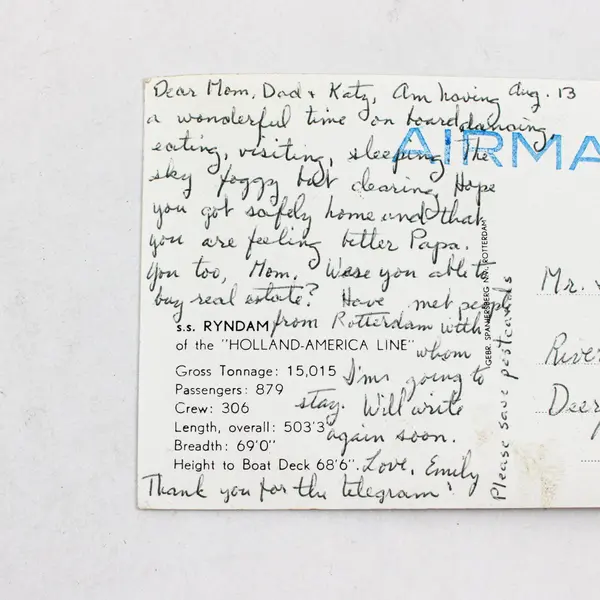 Aug. 13
Dear Mom, Dad + Katz, Am having
a wonderful time on board dancing,
eating, visiting, sleeping. The
sky foggy but clearing. Hope
you got safely home and that
you are feeling better Papa.
You too, Mom. Were you able to
buy real estate? Have met people
from Rotterdam with
whom
I'm going to
stay. Will write
again soon.
Love, Emily
Thank you for the telegram!
s.s. RYNDAM
of the "HOLLAND-AMERICA LINE"
Gross Tonnage: 15,015
Passengers: 879
Crew: 306
Length, overall: 503'3
Breadth: 69'0"
Height to Boat Deck 68'6".
GEBR. SPANJERSBERG N.V., ROTTERDAM
Please save postcards
AIRMA
Mr. &
River
Deer